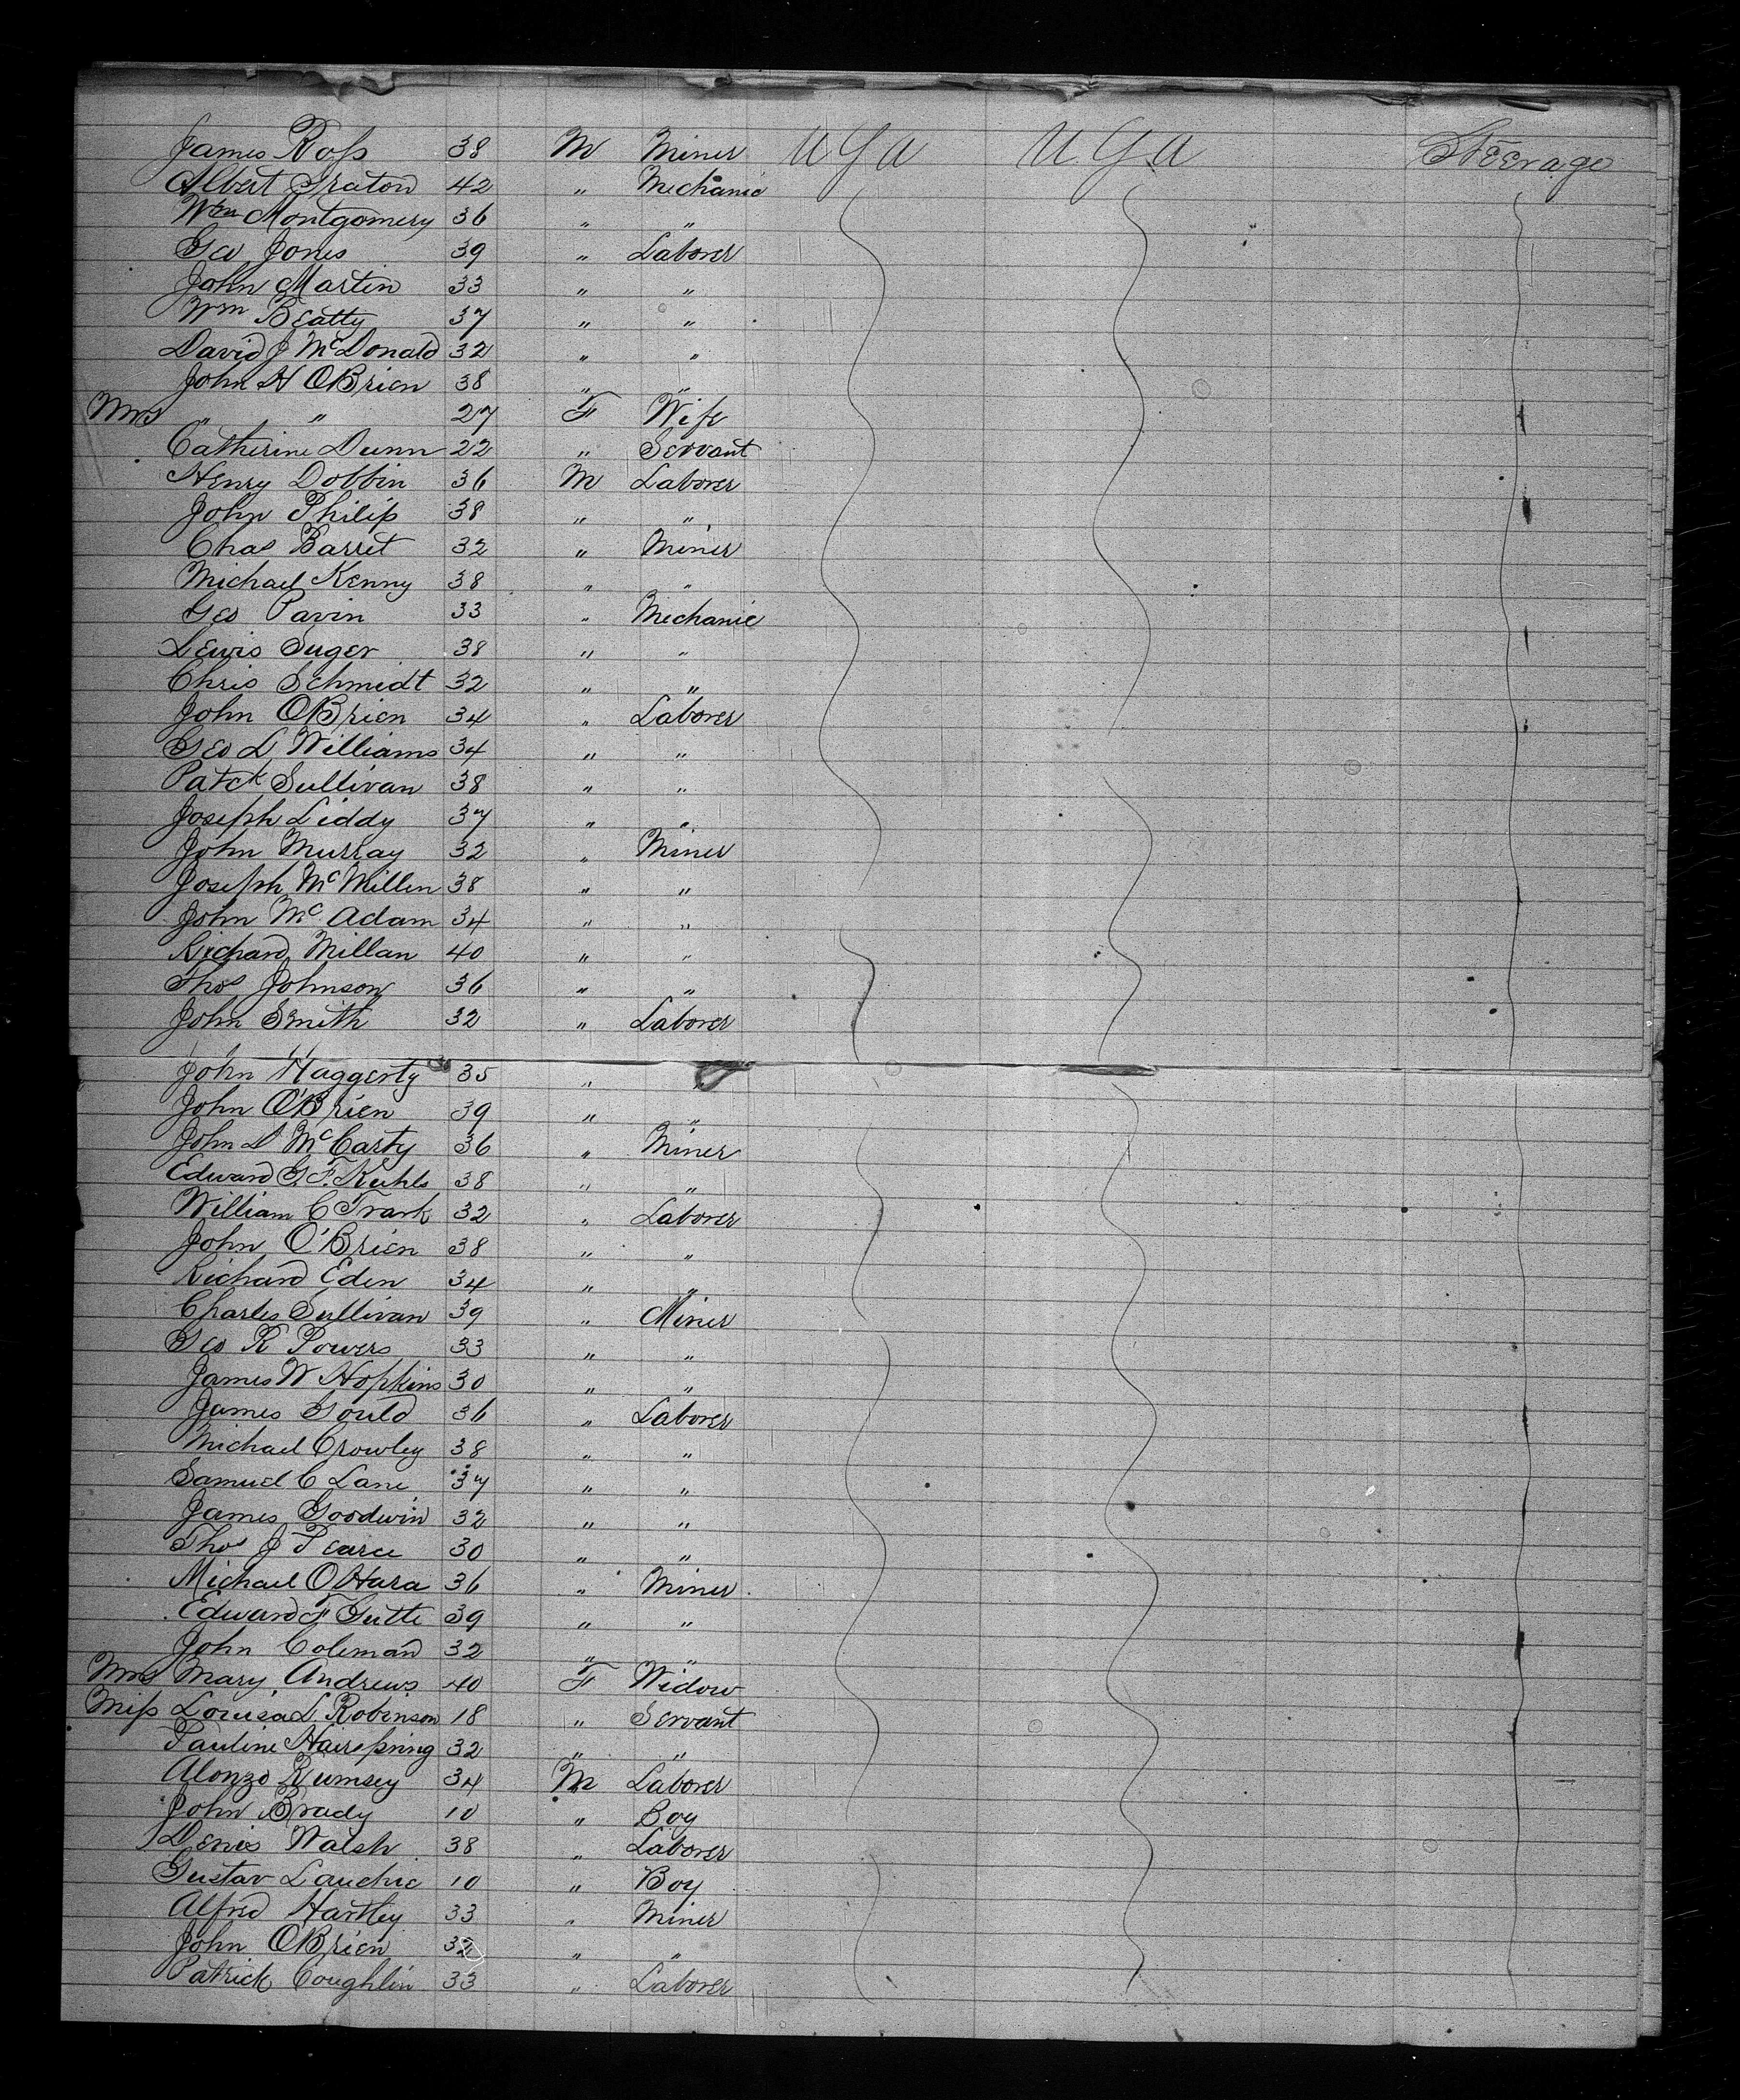 James Ross 38 M Miner USA USA Steerage
Albert Traton 42 " Mechanic
Wm Montgomery 36 " "
Geo Jones 39 " Laborer
John Martin 33 " "
Wm Beatty 37 " "
David J McDonald 32 " "
John H OBrien 38 " "
Mrs " " 27 F Wife
Catherine Dunn 22 " Servant
Henry Dobbin 36 M Laborer
John Philip 38 " "
Chas Barret 32 " Miner
Michael Kenny 38 " "
Geo Pavin 33 " Mechanic
Lewis Suger 38 " "
Chris Schmidt 32 " "
John OBrien 34 " Laborer
Geo L Williams 34 " "
Patck Sullivan 38 " "
Joseph Liddy 37 " "
John Murray 32 " Miner
Joseph McMillen 38 " "
John McAdam 34 " "
Richard Millan 40 " "
Thos Johnson 36 " "
John Smith 32 " Laborer
John Haggerty 35 " "
John O'Brien 39 " "
John D McCarty 36 " Miner
Edward G. F. Kuhls 38 " "
William C Trask 32 " Laborer
John O'Brien 38 " "
Richard Eden 34 " "
Charles Sullivan 39 " Miner
Geo R Powers 33 " "
James W Hopkins 30 " "
James Gould 36 " Laborer
Michael Crowley 38 " "
Samuel C Lane 37 " "
James Goodwin 32 " "
Thos J Pearce 30 " "
Michael OHara 36 " Miner
Edward F Gutte 39 " "
John Coleman 32 " "
Mrs Mary Andrews 40 F Widow
Miss Louisa L. Robinson 18 " Servant
Pauline Hairspring 32 " "
Alonzo Rumsey 34 M Laborer
John Brady 10 " Boy
Denis Walsh 38 " Laborer
Gustav Lauchie 10 " Boy
Alfred Hartley 33 " Miner
John OBrien 32 " "
Patrick Coughlin 33 " Laborer